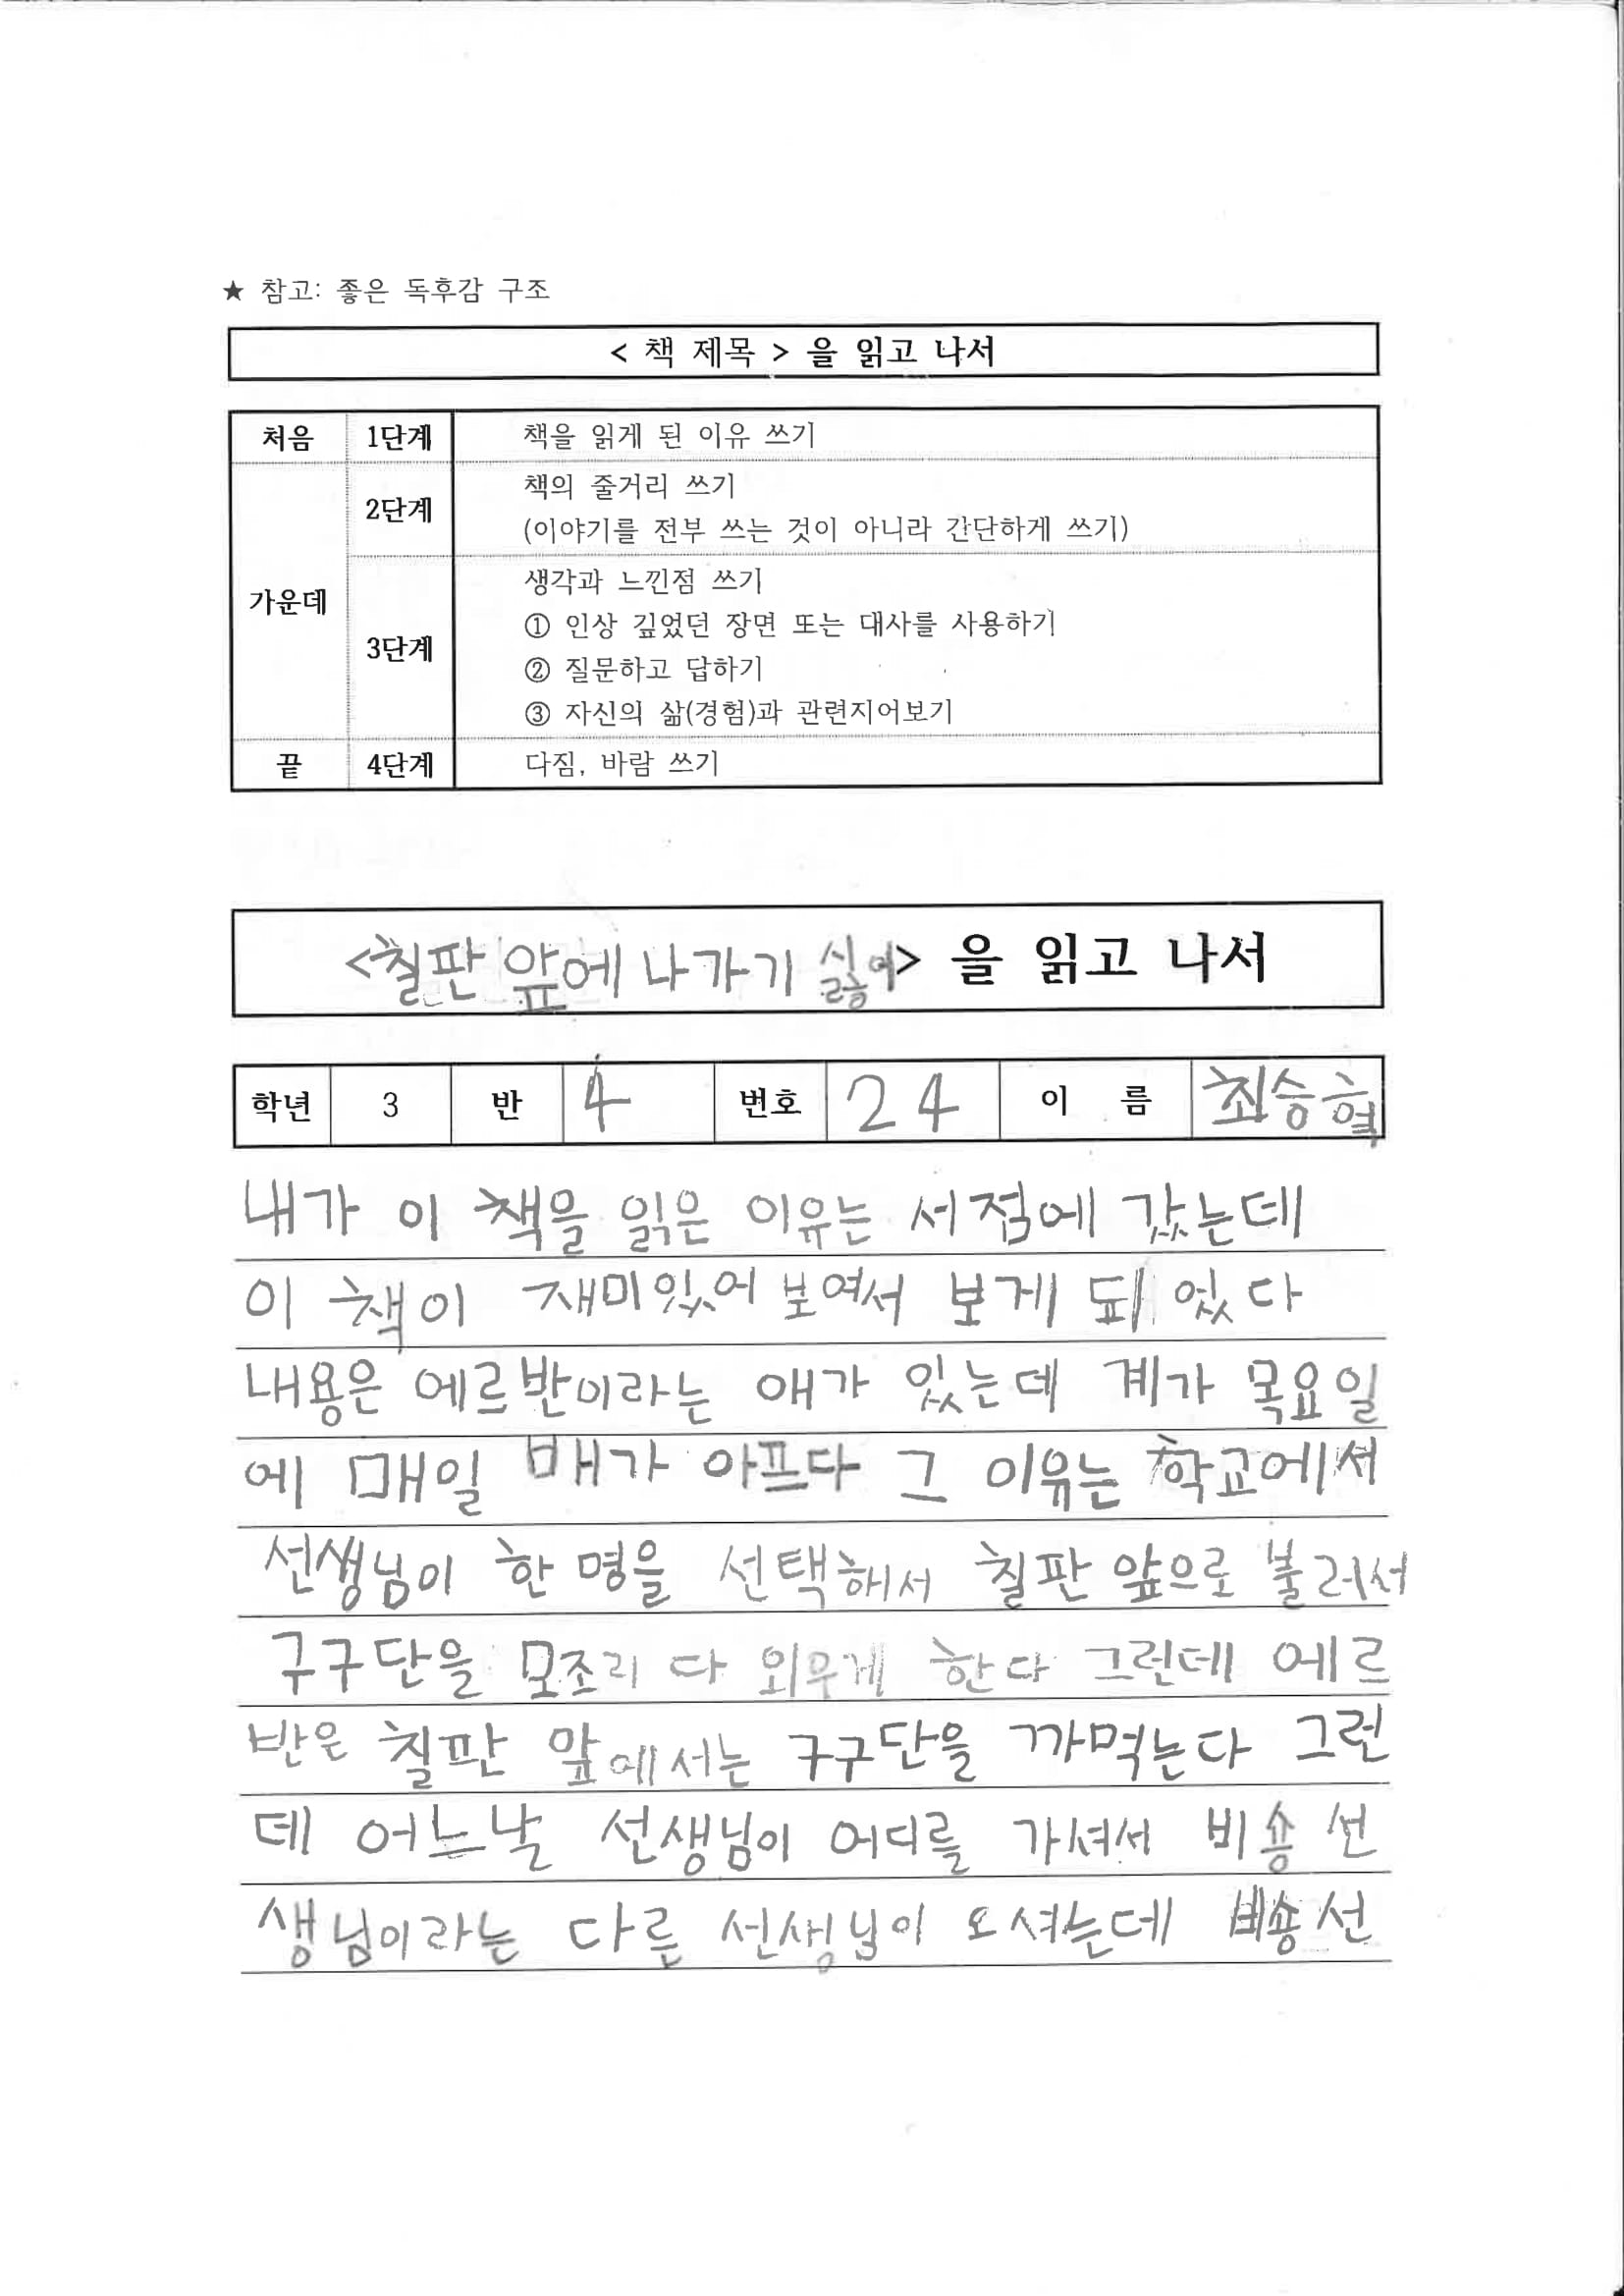 ★ 참고: 좋은 독후감 구조
< 책 제목 > 을 읽고 나서
처음 1단계 책을 읽게 된 이유 쓰기
가운데 2단계 책의 줄거리 쓰기
(이야기를 전부 쓰는 것이 아니라 간단하게 쓰기)
3단계 생각과 느낀점 쓰기
① 인상 깊었던 장면 또는 대사를 사용하기
② 질문하고 답하기
③ 자신의 삶(경험)과 관련지어보기
끝 4단계 다짐, 바람 쓰기
<칠판 앞에 나가기 싫어> 을 읽고 나서
학년 3 반 4 번호 24 이 름 최승혁
내가 이 책을 읽은 이유는 서점에 갔는데
이 책이 재미있어 보여서 보게 되었다
내용은 에르반이라는 애가 있는데 계가 목요일
에 매일 배가 아프다 그 이유는 학교에서
선생님이 한 명을 선택해서 칠판 앞으로 불러서
구구단을 모조리 다 외우게 한다 그런데 에르
반은 칠판 앞에서는 구구단을 까먹는다 그런
데 어느날 선생님이 어디를 가셔서 비숑 선
생님이라는 다른 선생님이 오셔는데 비숑 선